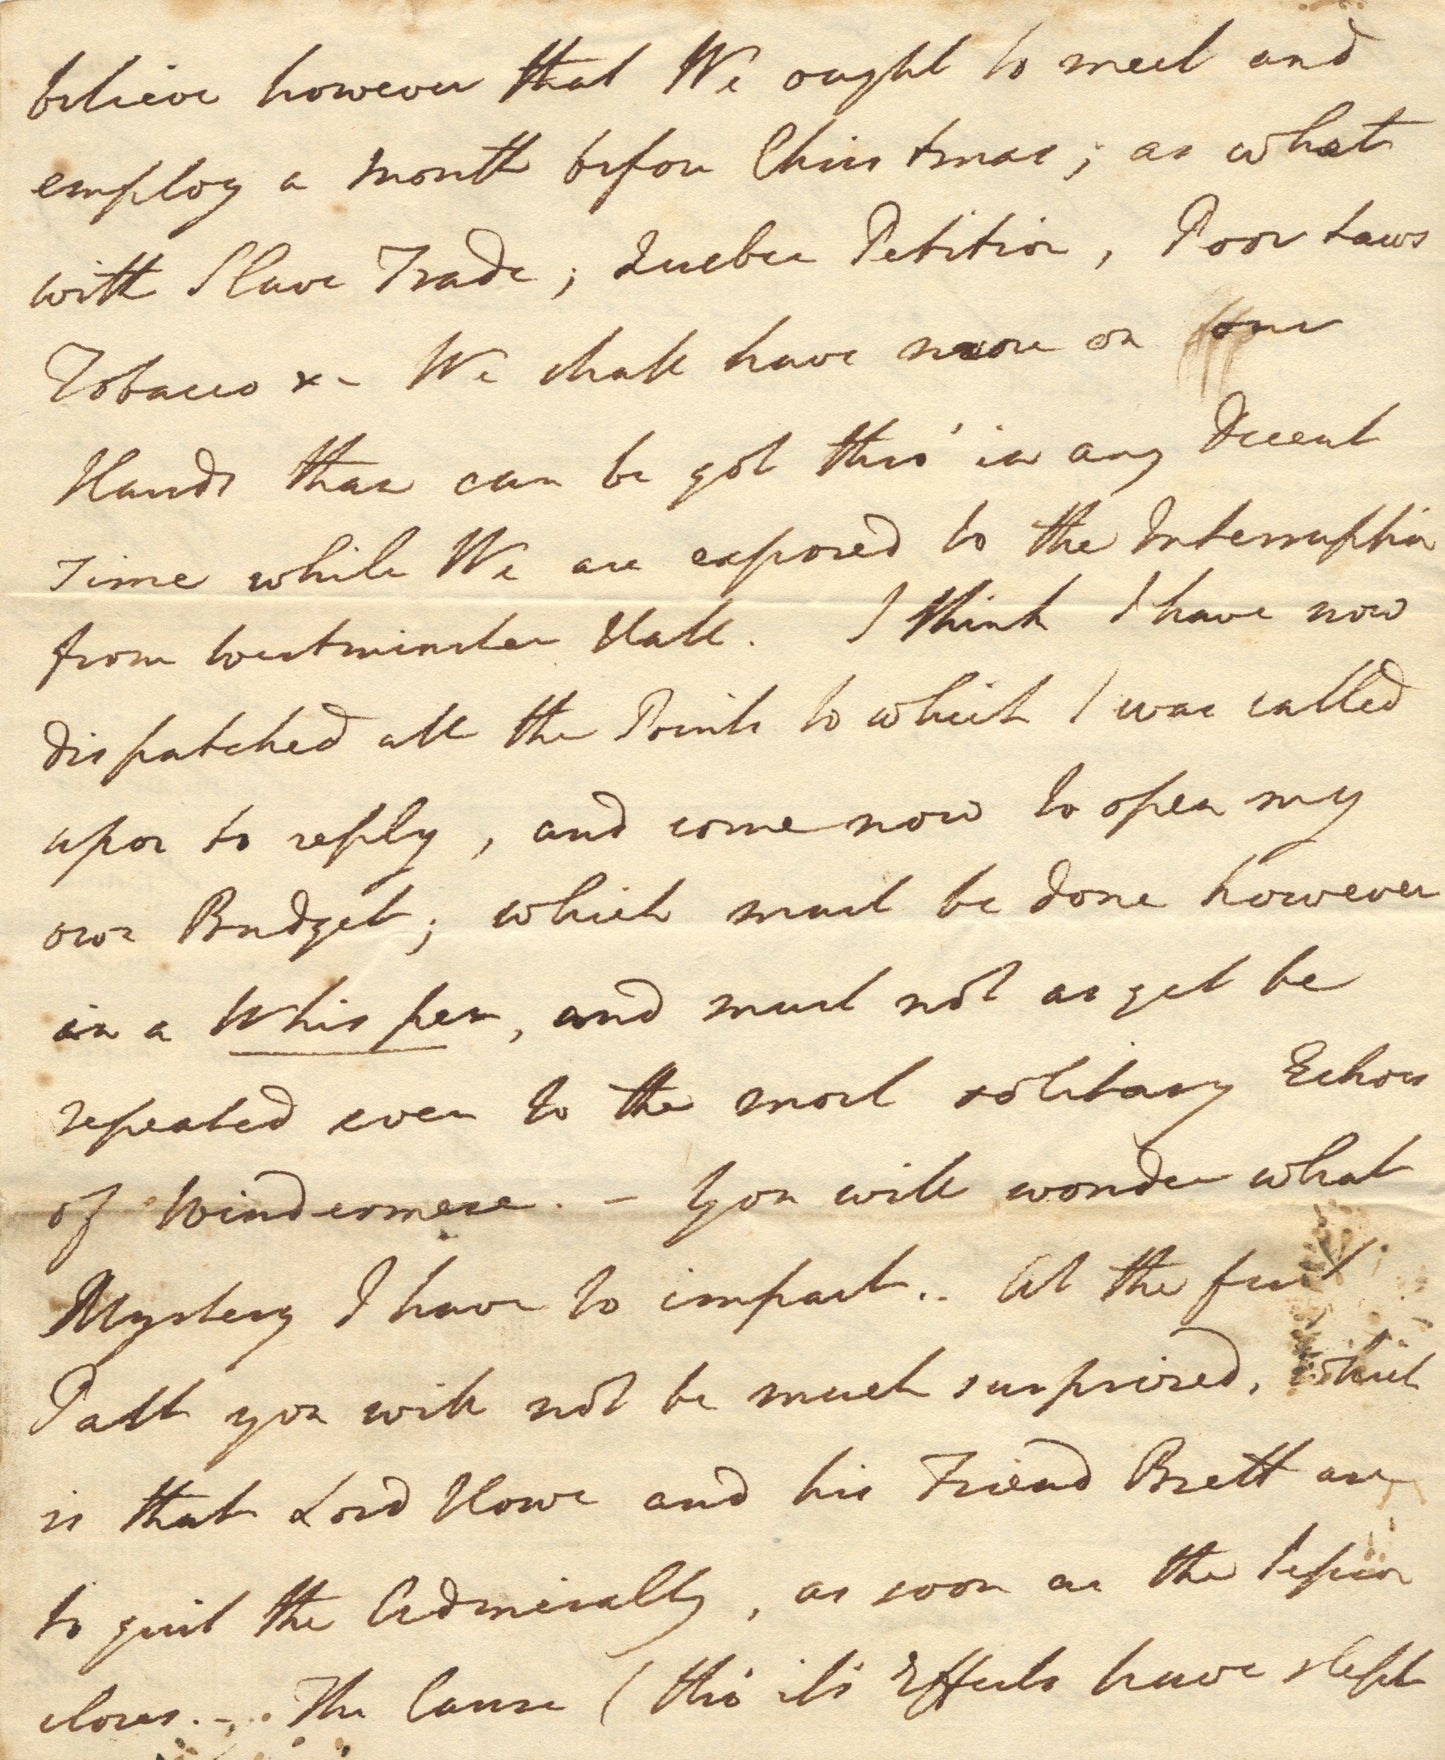 believe however that We ought to meet and
employ a Month before Christmas; as what
with Slave Trade; Quebec Petition, Poor Laws
Tobacco &c - We shall have more on our
Hands than can be got thro' in any Decent
Time while We are exposed to the Interruption
from Westminster Hall. I think I have now
dispatched all the Points to which I was called
upon to reply, and come now to open my
own Budget; which must be done however
in a Whisper, and must not as yet be
repeated even to the most solitary Echoes
of Windermere. - You will wonder what
Mystery I have to impart.. At the first
Part you will not be much surprised, which
is that Lord Howe and his Friend Brett are
to quit the Admiralty, as soon as the Session
closes. - . The Cause (tho' it's Effects have slept